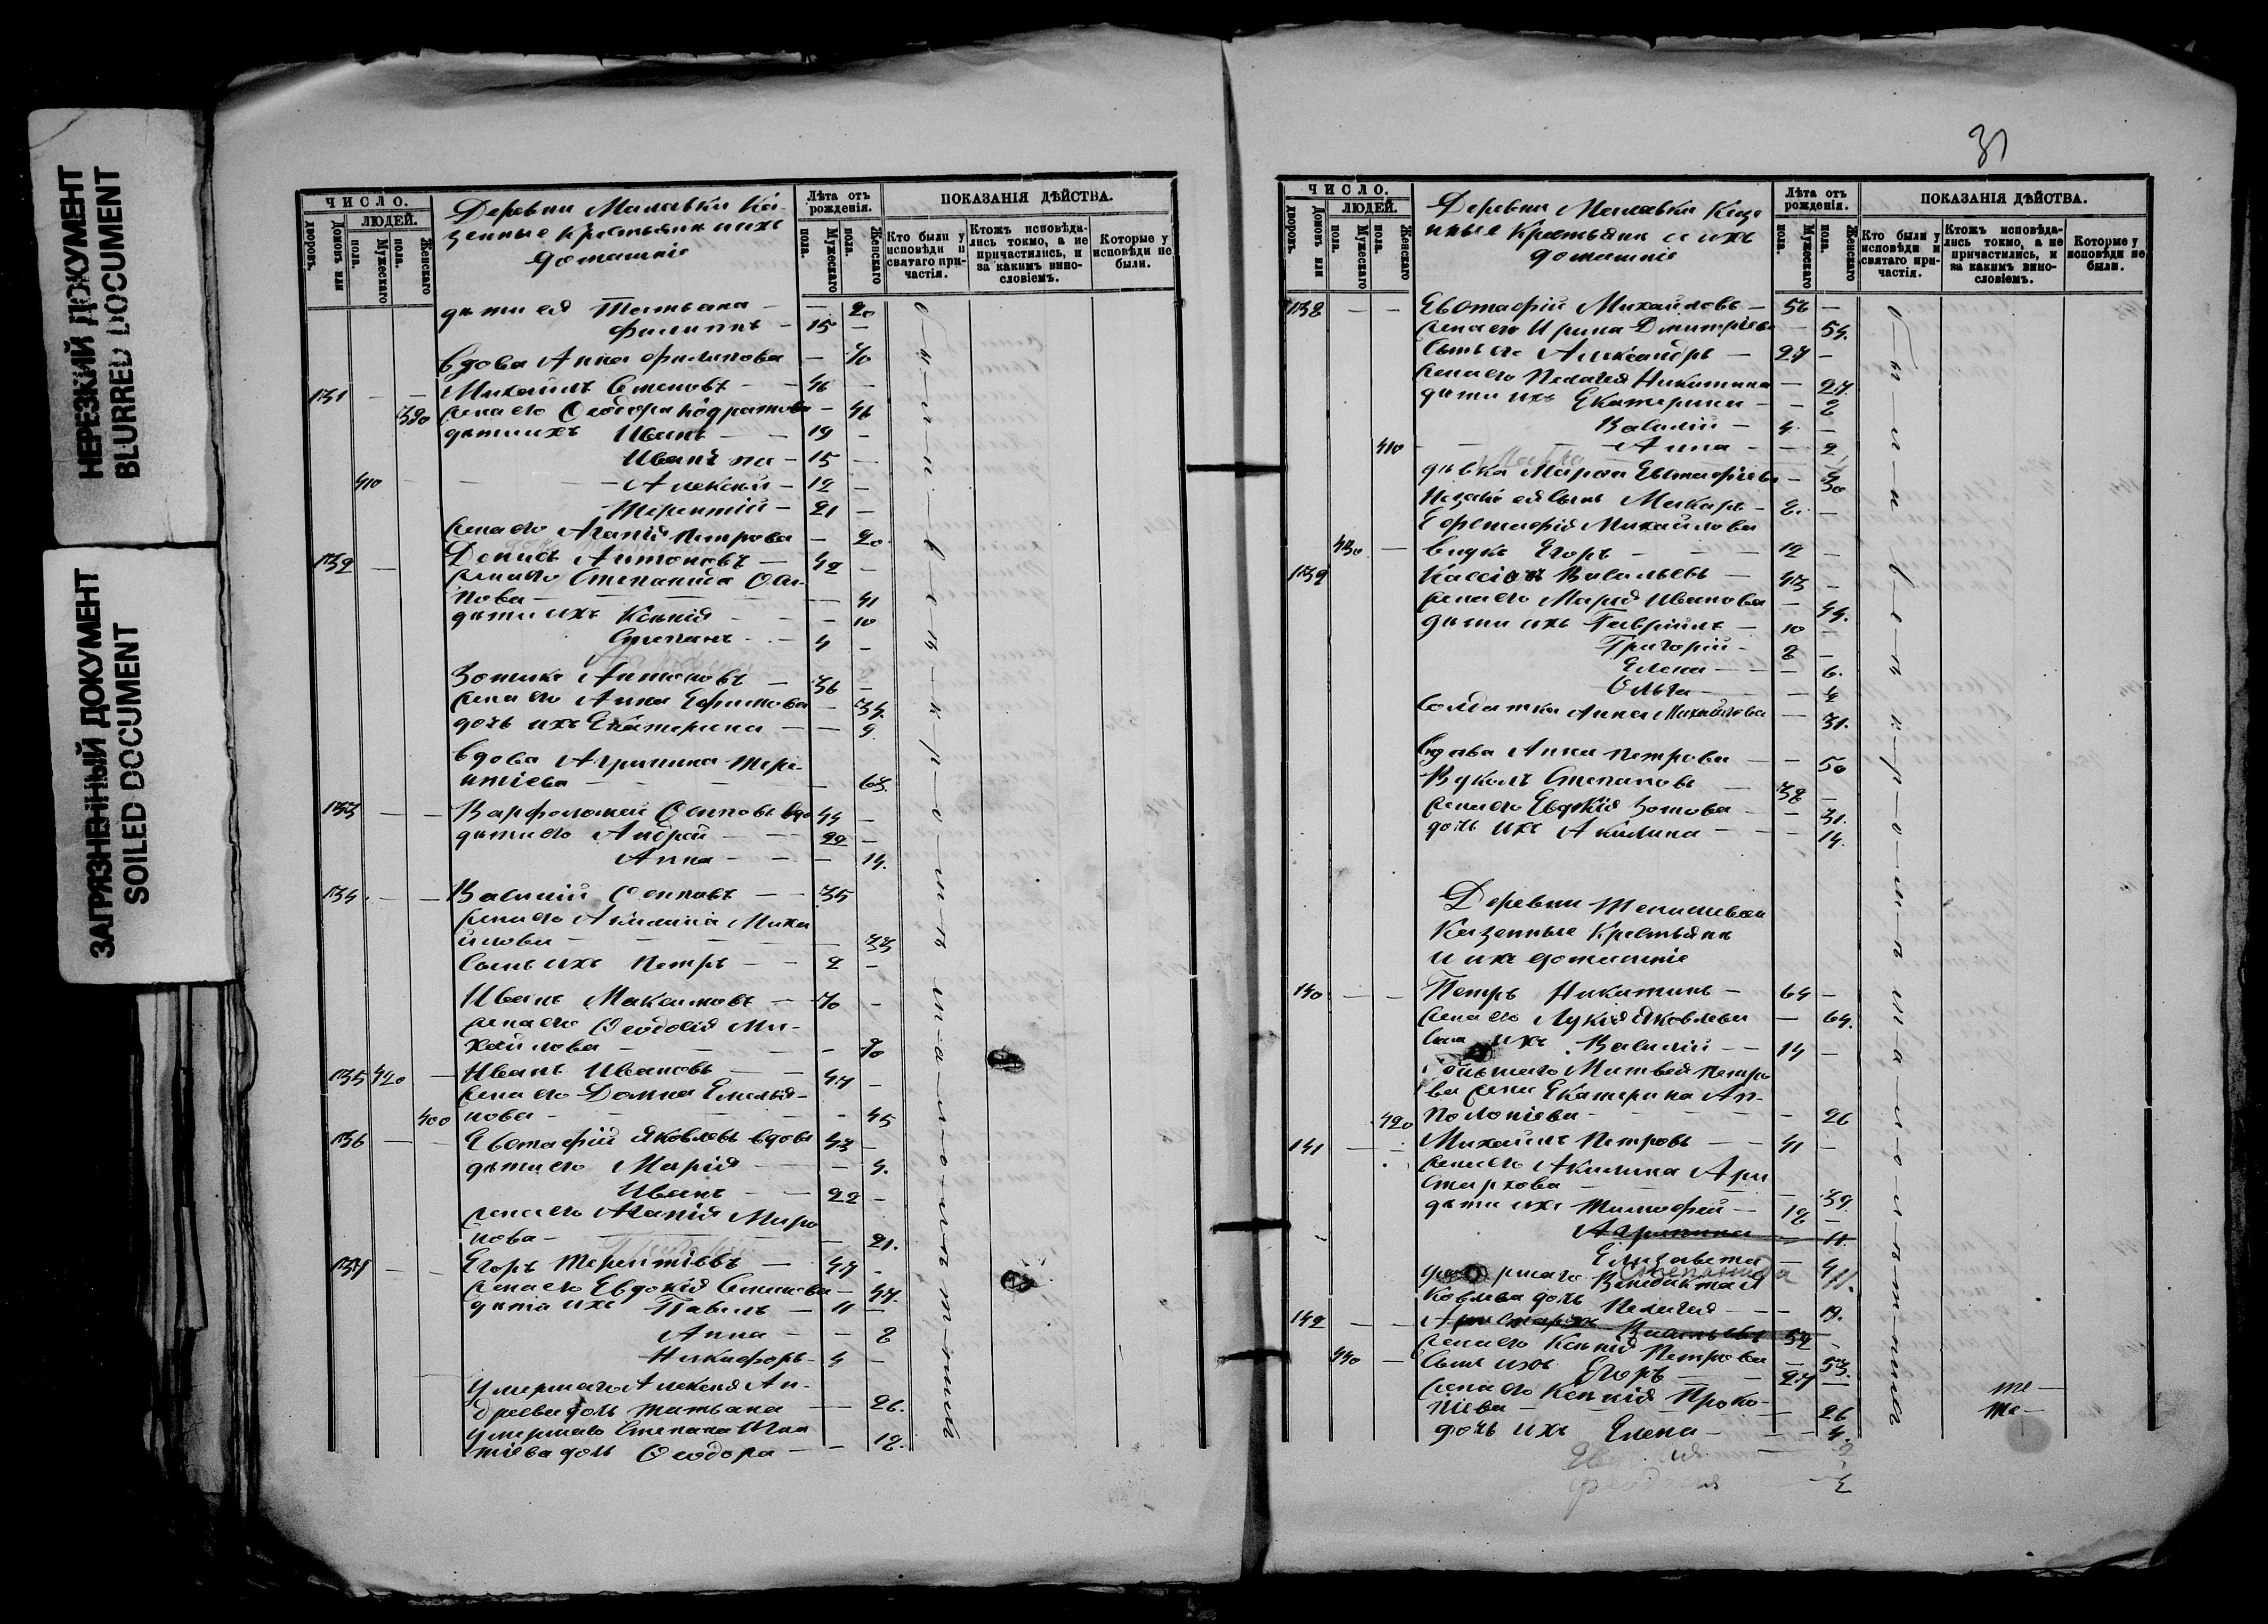 НЕРЕЗКИЙ ДОКУМЕНТ
BLURRED DOCUMENT
ЗАГРЯЗНЕННЫЙ ДОКУМЕНТ
SOILED DOCUMENT
ЧИСЛО.
ЛЮДЕЙ.
Домовъ или дворовъ.
Мужескаго пола.
Женскаго пола.
Деревни Малавки Ка-
зенные крестьяне и ихъ
домашніе
Лѣта отъ рожденія.
Мужескаго пола.
Женскаго пола.
ПОКАЗАНІЯ ДѢЙСТВА.
Кто были у исповѣди и святаго при-частія.
Ктожъ исповѣда-лись токмо, а не причастились, и за какимъ вино-словіемъ.
Которые у исповѣди не были.
дѣти ея Татьяна — — 20
Филиппъ — 15 —
вдова Анна Филипова — 70
131 — — Михаилъ Семеновъ — 46 —
390 жена его Феодора — 46
дѣти ихъ Иванъ — — 19 —
Иванъ — 15 —
410 — Алексѣй — 12 —
Терентій — 21 —
жена его Агапія Петрова — 20
132 — Денисъ Антоновъ — 42 —
жена его Степанида Оси-
пова — — 41
дѣти ихъ Ксенія — — 10
Степанъ — 4 —
Зотикъ Антоновъ — 36 —
жена его Анна Ефимова — 34.
дочь ихъ Екатерина — — 4.
вдова Агрипина Тере-
нтіева — — 63.
133 — — Варфоломей Осиповъ вдо 44 —
дѣти его Андрей — 22 —
Анна — — 14.
134. — — Василій Осиповъ — — 35
жена его Акилина Миха
йлова — — 33
сынъ ихъ Петръ — — 2 —
Иванъ Максимовъ — 70 —
жена его Феодосія Ми-
хайлова — — 70
135 420 — Иванъ Ивановъ — 47 —
жена его Домна Емелья-
400 нова — — 45
136 — Евстафій Яковлевъ вдовъ 43 —
дѣти его Марія — — 4.
Иванъ — — 22 —
жена его Агапія Миро
нова — — 21.
137 — — Егоръ Терентіевъ — 47 —
жена его Евдокія Семенова — 47.
дѣти ихъ Павелъ — 11 —
Анна — — 8
Никифоръ — 4 —
Умершаго Алексѣя Ан-
дреева дочь Татьяна — — 26.
Умершаго Степана Игна
тіева дочь Феодора — — 18.
31
ЧИСЛО.
ЛЮДЕЙ.
Домовъ или дворовъ.
Мужескаго пола.
Женскаго пола.
Деревни Малавки Казе
нные Крестьяне и ихъ
домашніе
Лѣта отъ рожденія.
Мужескаго пола.
Женскаго пола.
ПОКАЗАНІЯ ДѢЙСТВА.
Кто были у исповѣди и святаго при-частія.
Ктожъ исповѣда-лись токмо, а не причастились, и за какимъ вино-словіемъ.
Которые у исповѣди не были.
138 — — Евстафій Михайловъ — 56 —
жена его Ирина Дмитріева — 54.
сынъ его Александръ — 27 —
жена его Пелагея Никитина — 27.
дѣти ихъ Екатерина — — 8
Василій — 4. —
410 — Анна — — 2
дѣвка Марѳа Евстафіева — 30
незако ея сынъ Макаръ — 8. —
Евстафія Михайлова
430 — внукъ Егоръ — — 12 —
139 Кассіанъ Васильевъ — 43 —
жена его Марія Иванова — 44.
дѣти ихъ Гавріилъ — 10 —
Григорій — 8 —
Елена — — 6.
Ольга — — 4
Солдатка Анна Михайлова — 31.
вдова Анна Петрова — — 50
Вуколъ Степановъ — 38 —
жена его Евдокія Зотова — — 31.
дочь ихъ Акилина — — 14.
Деревни Тенишевой
Казенные Крестьяне
и ихъ домашніе
140 — — Петръ Никитинъ — 64 —
жена его Лукія Яковлева — 64.
ихъ Василій — — 14 —
Матвея Петро
ва жена Екатерина Ап-
420 полоніева — — 26
141 — — Михаилъ Петровъ — — 41 —
жена его Акилина Ари
стархова — — 39.
дѣти ихъ Тимофей — 18 —
Агрипина — 11.
Елизавета — 4
Степанида 11.
Венедикта Я
ковлева дочь Пелагея — — 19.
142 — — Аристархъ Васильевъ 54 —
жена его Ксенія Петрова — 53.
430 — сынъ ихъ Егоръ — — 27 —
жена его Ксенія Проко-
піева — — 26
дочь ихъ Елена — — 4.